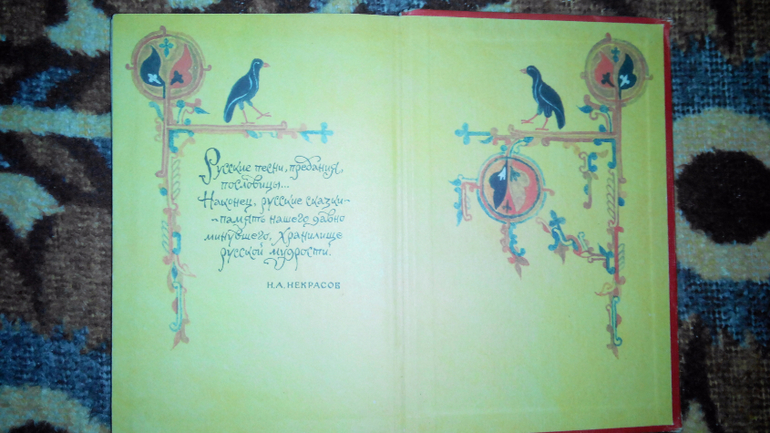 Русские песни, предания,
пословицы...
Наконец, русские сказки -
- память нашего давно
минувшего, хранилище
русской мудрости.
Н.А.НЕКРАСОВ